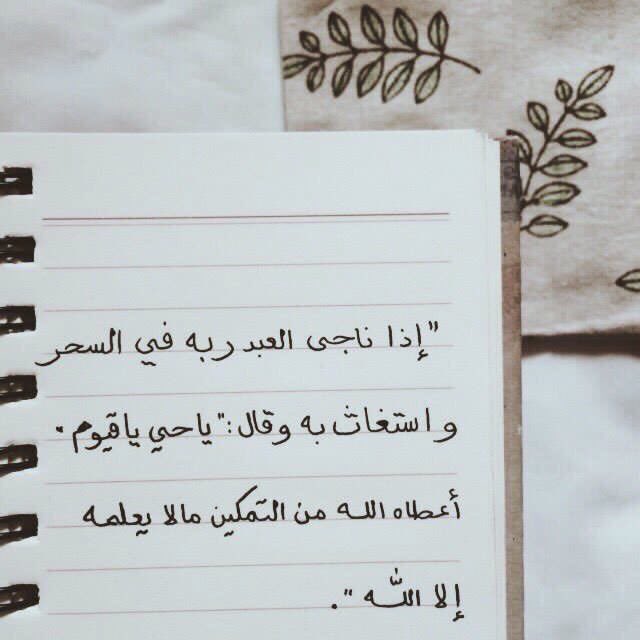 "إذا ناجى العبد ربه في السحر
واستغاث به وقال: "ياحي ياقيوم.
أعطاه الله من التمكين مالا يعلمه
إلا الله".